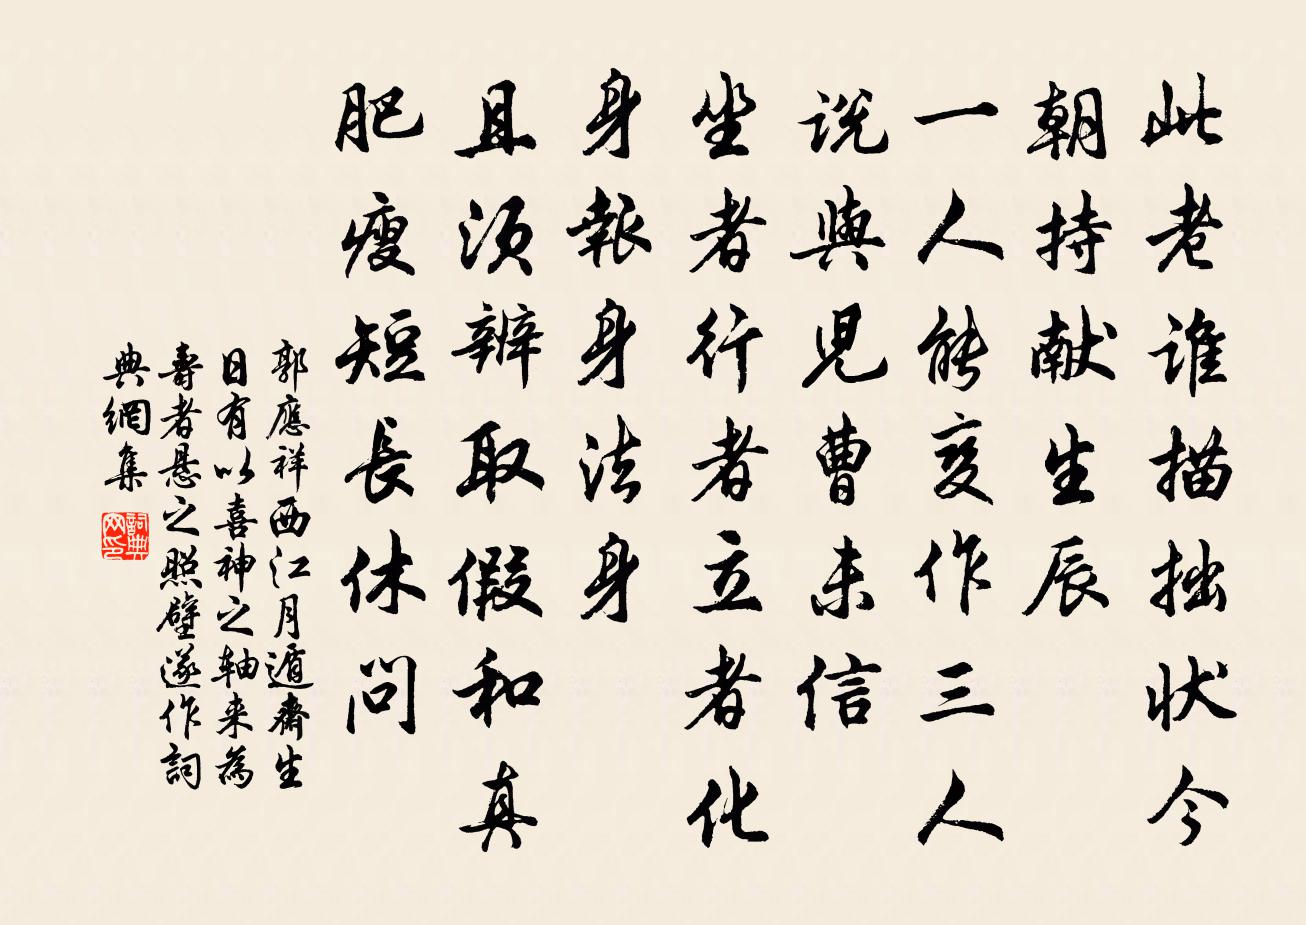 此老谁描拙状今
朝持献生辰
一人能变作三人
说與児曹未信
坐者行者立者化
身報身身法身
且须辨取假和真
肥瘦短長休问
郭應祥西江月遁齋生
日有以喜神之轴来為
壽者悬之照壁遂作詞
典網集
詞典
网印